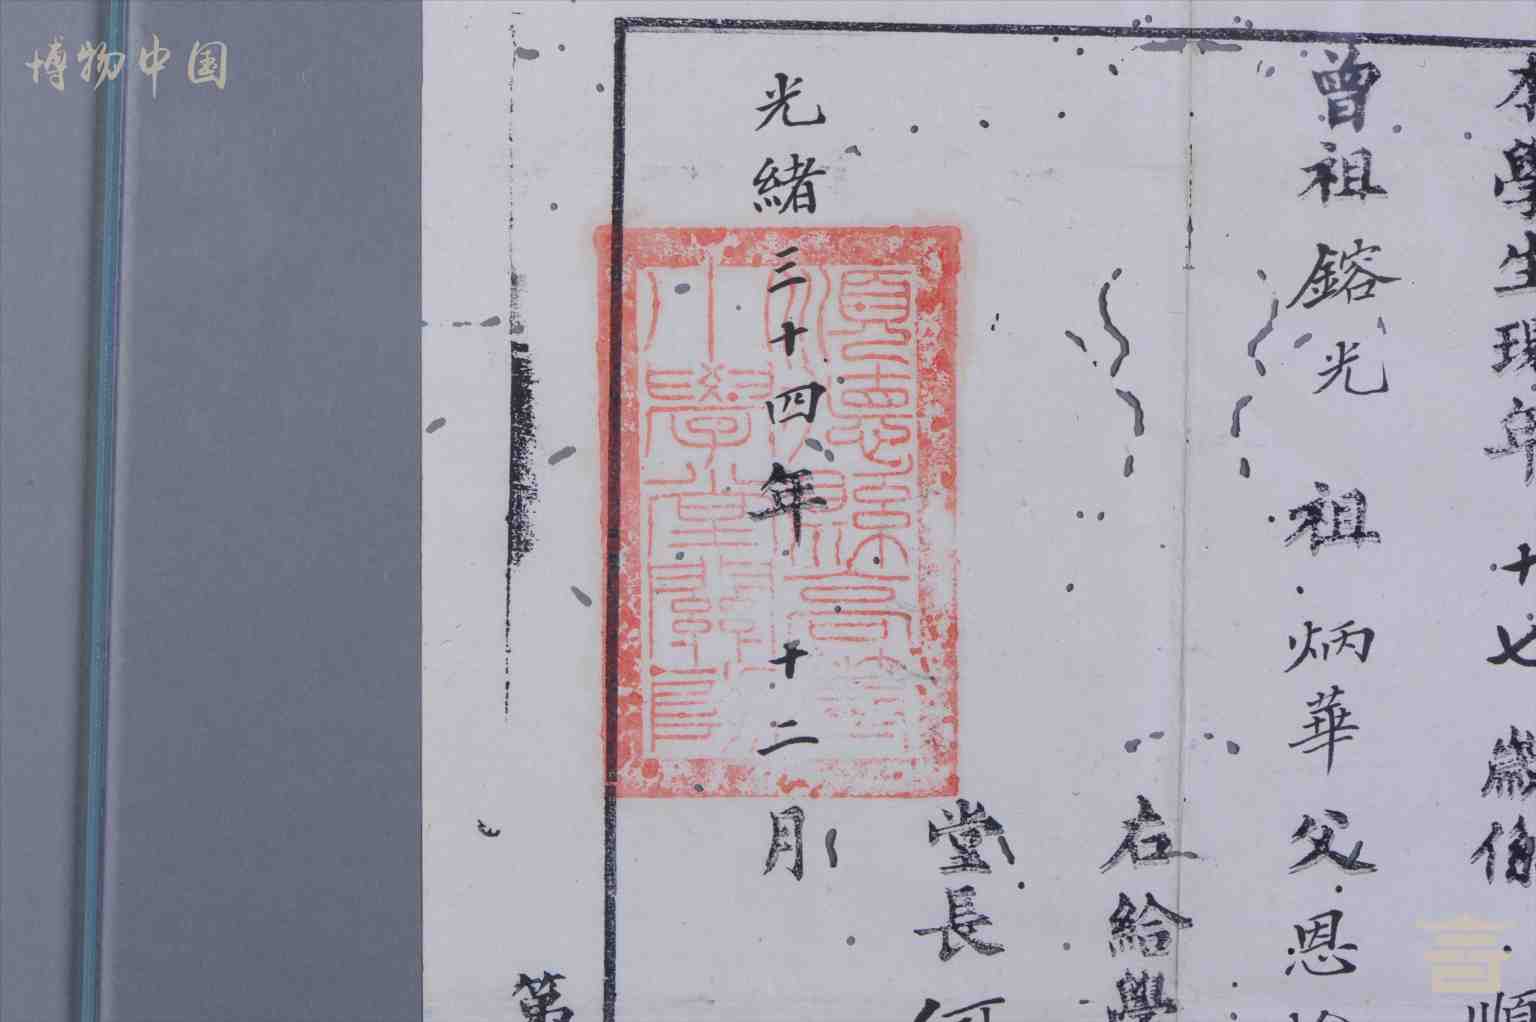 博物中国
本學生現年十七歲係順
曾祖鎔光 祖炳華父恩
在給學
堂長何
光緒三十四年十二月
第